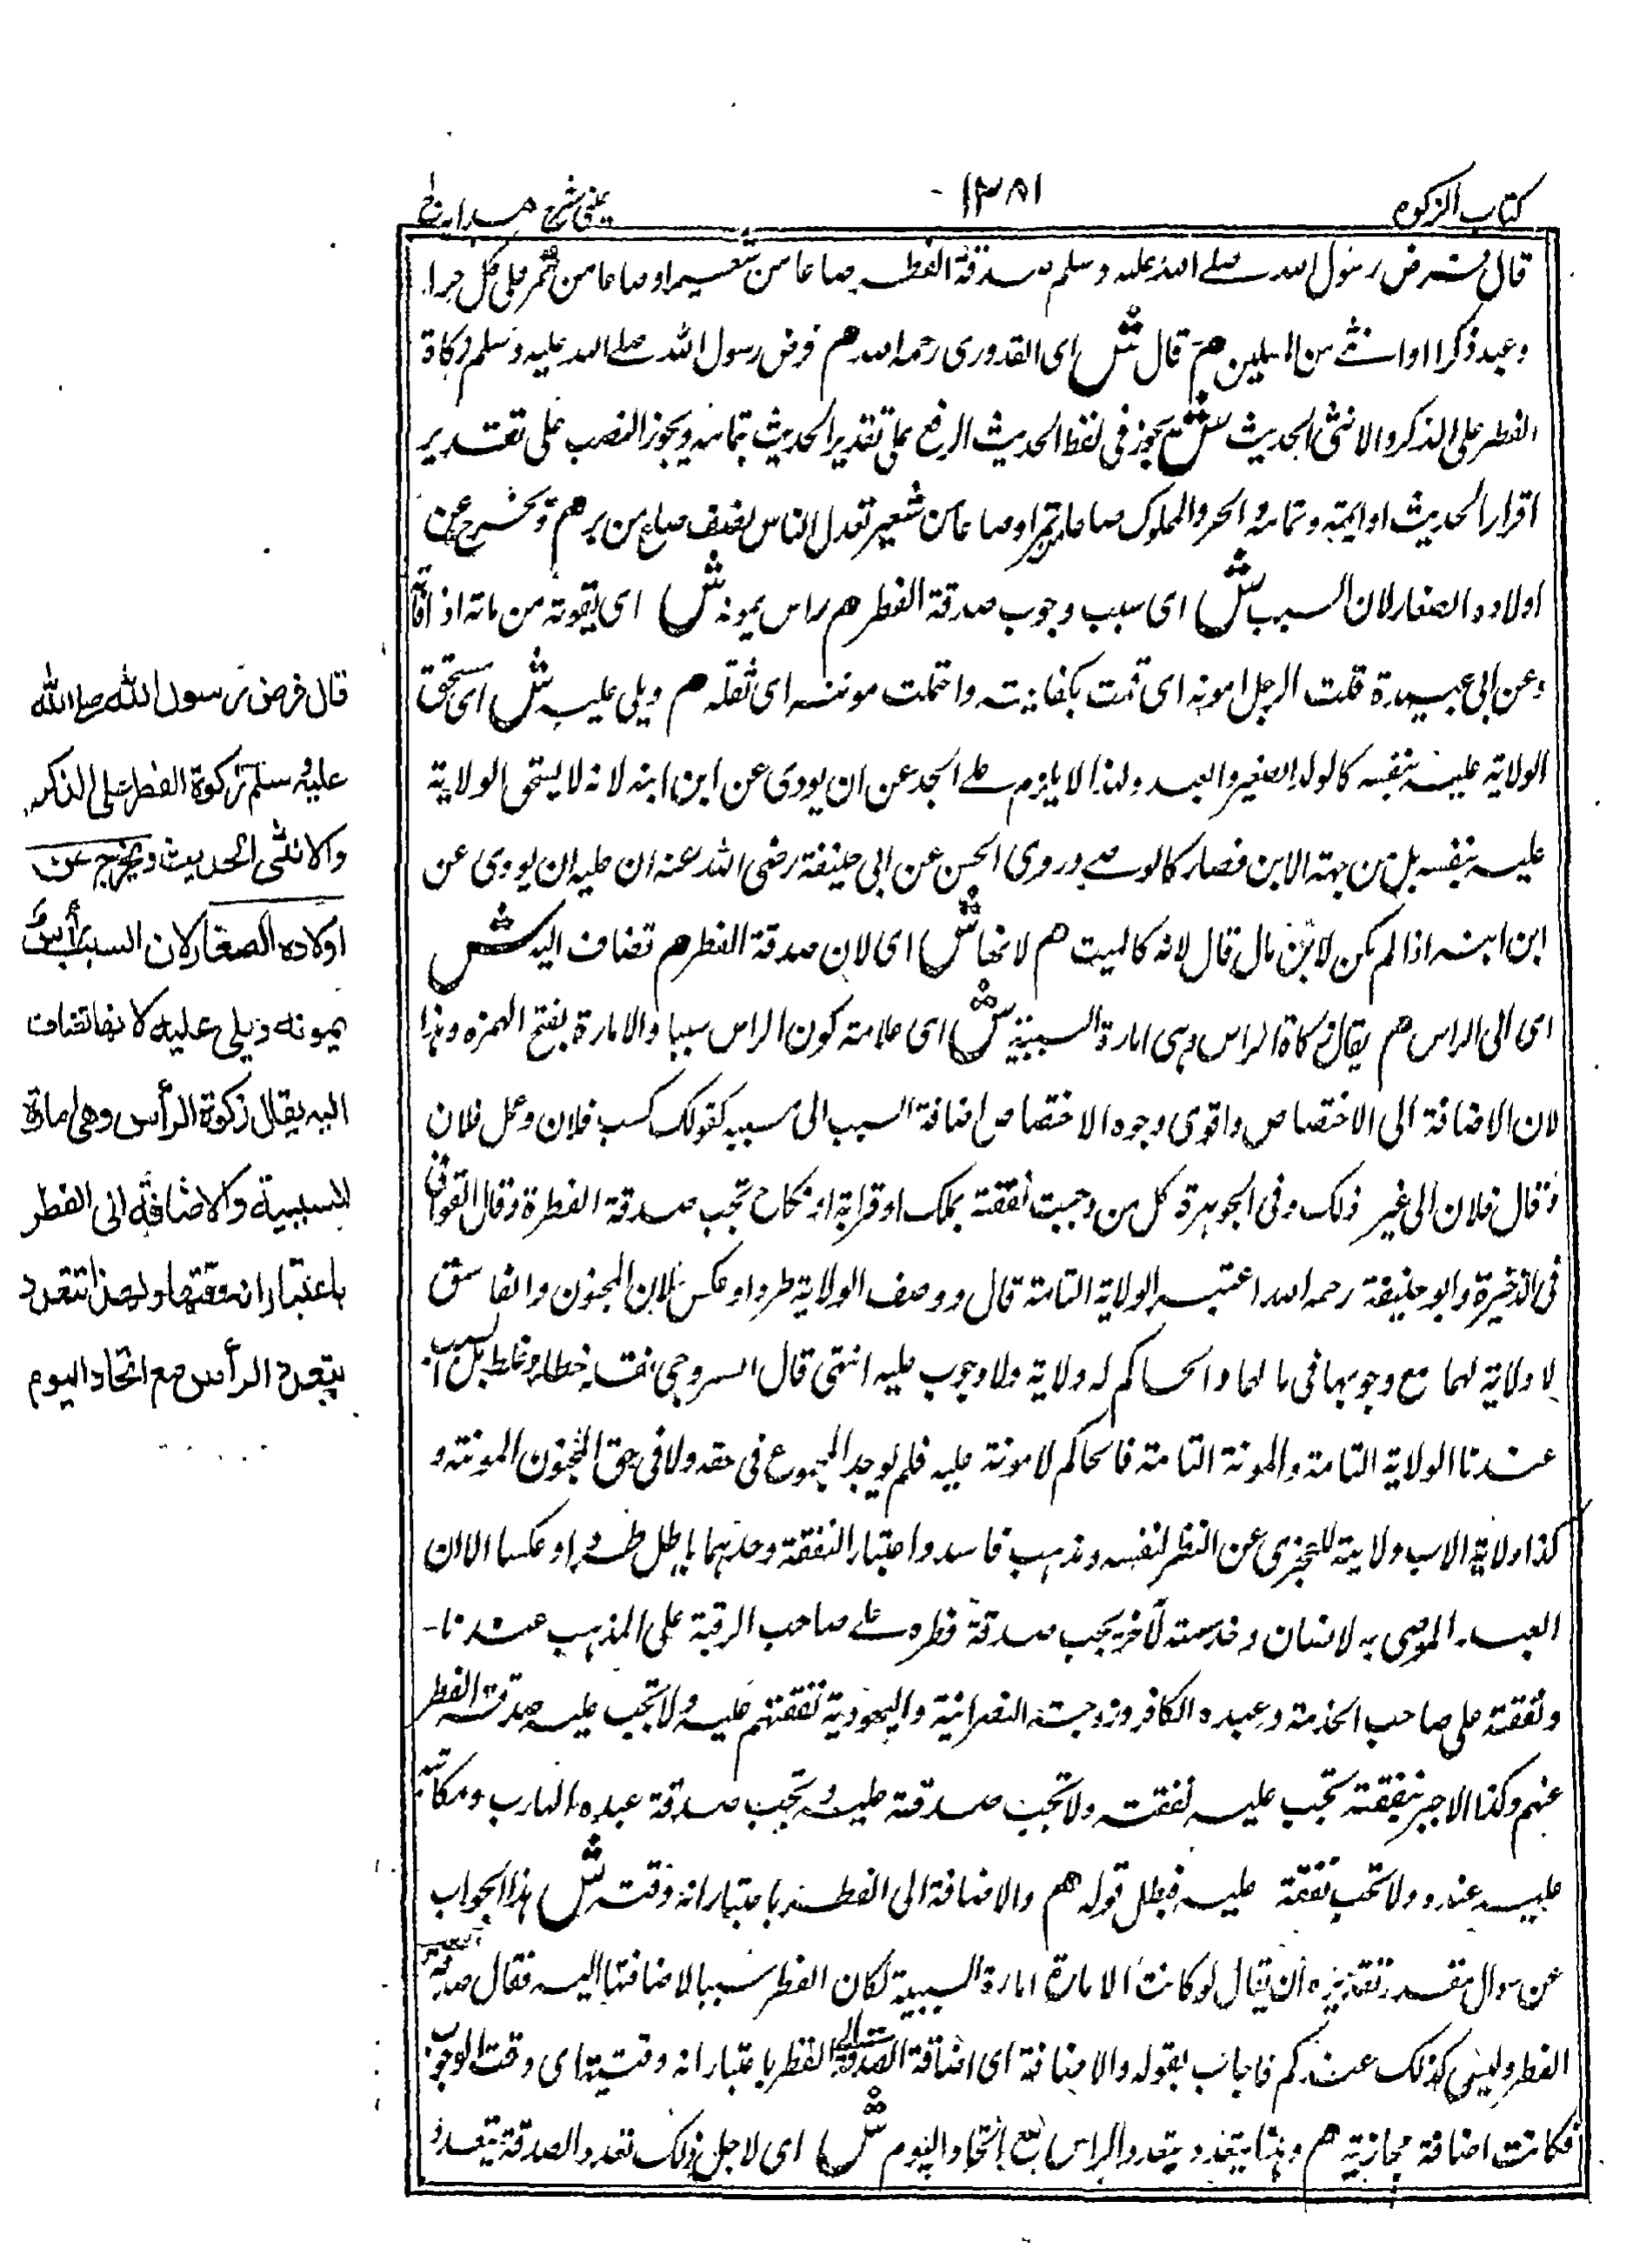 كتاب الزكوة
١٣٨١
عينى شرح هدايه ج ١
قال فرض رسول الله صلے الله عليه وسلم صدقة الفطر صاعا من شعير او صاعا من تمر على كل حر او
وعبد ذكرا او انثے من المسلمين م قال ش اى القدورى رحمه الله م فرض رسول الله صلے الله عليه وسلم زكاة
الفطر على الذكر والانثى الحديث ش يجوز فى لفظ الحديث الرفع على تقدير الحديث بتمامه ويجوز النصب على تقدير
اقرار الحديث او ايمته وتمامه والحر والمملوك صاعا من تمر او صاعا من شعير تعدل الناس نصف صاع من بر هم وتخرج عن
اولاده الصغار لان السبب ش اى سبب وجوب صدقة الفطر هم راس يمونه ش اى يقوته من مانه اذا قاته
وعن ابى عبيدة قلت الرجل امونه اى قمت بكفايته واحتملت مونته اى ثقله هم ويلى عليه ش اى يستحق
الولاية عليه بنفسه كالولد الصغير والعبد ولهذا لا يلزم على الجد عن ان يودى عن ابن ابنه لانه لا يستحق الولاية
عليه بنفسه بل من جهة الابن فصار كالوصے وروى الحسن عن ابى حنيفة رضى الله عنه ان عليه ان يودى عن
ابن ابنه اذا لم يكن لابن مال قال لانه كالميت هم لانها ش اى لان صدقة الفطر هم تضاف اليه ش
اى الى الراس هم يقال زكاة الراس وهى امارة السببية ش اى علامة كون الراس سببا والامارة بفتح الهمزه وهذا
لان الاضافة الى الاختصاص واقوى وجوه الاختصاص اضافة السبب الى مسببه كقولك كسب فلان وعمل فلان
وقال فلان الى غير ذلك وفى الجوهرة كل من وجبت نفقته بملك او قرابة او نكاح تجب صدقة الفطرة وقال القرافى
فى الذخيرة وابو حنيفة رحمه الله اعتبر الولاية التامة قال ووصف الولاية طردا وعكس للابن المجنون والفاسق
لا ولاية لهما مع وجوبها فى مالهما والحاكم له ولاية ولا وجوب عليه انتهى قال السروجى نقله خطاء وغلط بل السبب
عندنا الولاية التامة والمونة التامة فالحاكم لا مونة عليه فلم يوجد المجموع فى حقه ولا فى حق المجنون المونته و
كذا ولاية الاب ولاية للعجزى عن النظر لنفسه ومذهبه فاسد واعتبار النفقة وحدهما باطل طردا وعكسا الا ان
العبد الموصى به لانسان وخدمته لآخر يجب صدقة فطره على صاحب الرقبة على المذهب عندنا۔
ونفقته على صاحب الخدمة وعبده الكافر وزوجته النصرانية واليهودية نفقتهم عليه ولا تجب عليه صدقة الفطر
عنهم وكذا الاجير بنفقته تجب عليه نفقته ولا تجب صدقة عليه وتجب صدقة عبده الهارب ومكاتبه
عليه عنده ولا تجب نفقة عليه فبطل قوله هم والاضافة الى الفطر باعتبار انه وقته ش هذا الجواب
عن سوال مقدر تقديره ان يقال لو كانت الامارة امارة السببية لكان الفطر سببا لاضافتها اليه فقال صدقة
الفطر وليس كذلك عندكم فاجاب بقوله والاضافة اى اضافة الصدقة الى الفطر باعتبار انه وقتية اى وقت الوجوب
فكانت اضافة مجازية هم ولهذا يتعدد بتعدد الراس مع اتحاد اليوم ش اى لاجل ذلك تعدد الصدقة بتعدد
قال فرض رسول الله صلى الله
عليه وسلم زكوة الفطر على الذكر
والانثى الحديث ويخرج عن
اولاده الصغار لان السبب رأس
يمونه ويلى عليه لانها تضاف
اليه يقال زكوة الرأس وهى امارة
للسببية والاضافة الى الفطر
باعتبار انه وقتها ولهذا تتعدد
بتعدد الرأس مع اتحاد اليوم